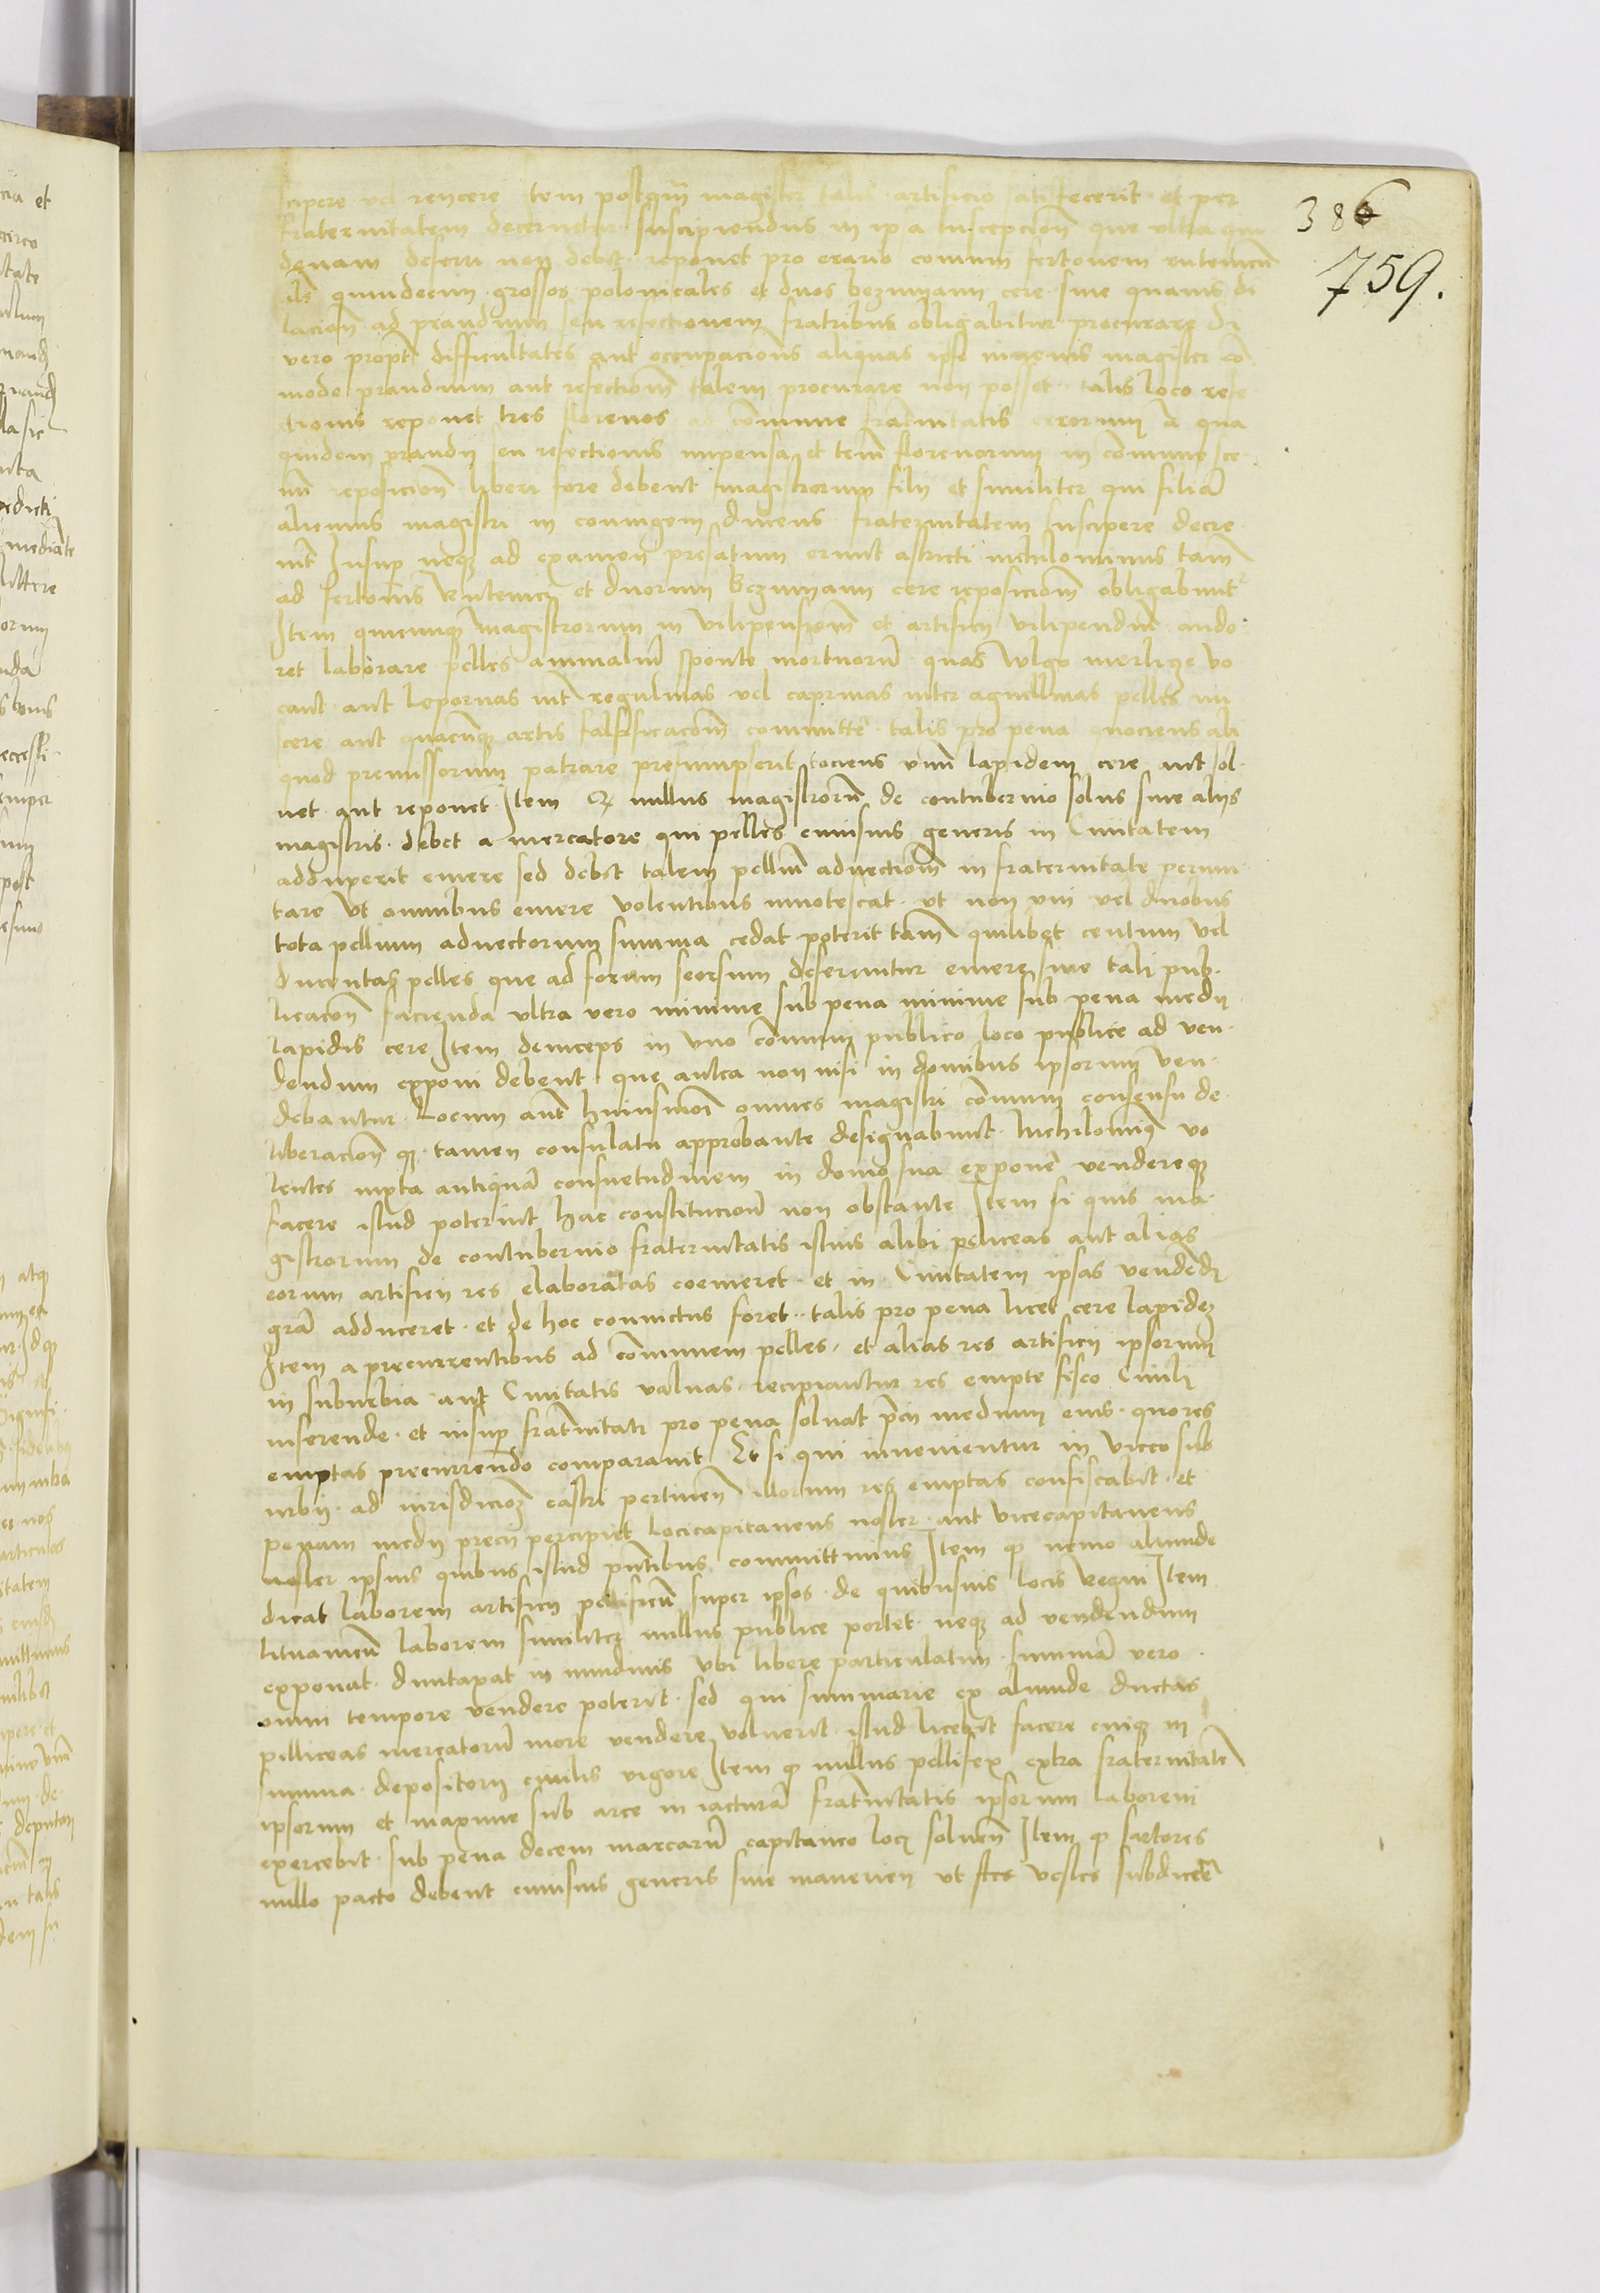 386
759.
cipere vel rencere tem postqm̄ magister talis artificio satisfecerit et per
fraternitatem decernetur suscipiendus in ipsa suscepcion̄ que ultra quin
denam deferri non debet reponet pro erario comuni fertonem rutenicū
als quindecim grossos polonicales et duos bezmann cere sine quavis di
lacion̄ ad prandium seu refectionem fratribus obligabitur procurare Si
vero propt̄ difficultates aut occupacion̄s aliquas ipse iuvenis magister cō
mode prandium aut refectionē talem procurare non posset talis loco refe
ctionis reponet tres florenos ad cōmune fratnitatis errorum a qua
quidem prandij seu refectionis impensa et tem̄ florenorum in cōmune
reposicion̄ liberi fore debent magistrorum filij et similiter qui filiā
alicuius magistri in coniugem ducens fraternitatem suscipere decre
uit Insup neqȝ ad examen prefatum erunt astricti nichilominus tam̄
ad fertonis rutenici et duorum bezmann cere reposicionē obligabunt
Item quicumqȝ magistrorum in vilipensionē et artificij vilipendiū aude
ret laborare pelles animaliū sponte mortuorū quas wlgo merlicze vo
cant aut leporinas int̄ regulinas vel caprinas inter agnellinas pelles mi
scere aut quacūqȝ artis falsificacionē committe talis pro pena quociens ali
quod premissorum patrare presumpserit tociens vnū lapidem cere aut sol
uet aut reponet Item qȝ nullus magistrorū de contubernio solus sine alijs
magistris debet a mercatore qui pelles cuiusuis generis in Ciuitatem
adduxerit emere sed debet talem pelliū aduectionē in fraternitate perum
tare vt omnibus emere volentibus innotescat vt non vni vel duobus
tota pellium aduectorum summa cedat poterit tam̄ quilibet centum vel
ducentas pelles que ad forum seorsum deferuntur emere sine tali pub
licacion̄ facienda ultra vero minime sub pena minime sub pena medij
lapidis cere Item deinceps in vno cōmuni publico loco publice ad ven
dendum exponi debent que antea non nisi in domibus ipsorum ven
debantur Locum aut̄ huiusmōi omnes magistri cōmuni consensu de
liberacion̄ qȝ tamen consulatu approbante designabunt Nichilominȝ vo
lentes iuxta antiquā consuetudinem in domo sua exponē vendereqȝ
facere istud poterint hac constitucionē non obstante Item si quis ma
gistrorum de contubernio fraternitatis istius alibi peliceas aut alias
eorum artificij res elaboratas coemeret et in Ciuitatem ipsas vendēdi
grā adduceret et de hoc conuictus foret talis pro pena licet cere lapidem
Item a precurrentibus ad cōmunem pelles et alias res artificij ipsorum
in suburbia aut Ciuitatis valuas recipiantur res empte fisco Ciuili
inserende et insup fratnitati pro pena soluat p̄cij medium eius quo res
emptas precurrendo comparauit Et si qui inuenientur in vicco sub
urbij ad iurisdicionē castri pertinen̄ illorum res emptas confiscabit et
penam medij precij percipiet locicapitaneus noster aut vicecapitaneus
noster ipsius quibus istud p̄ntibus committimus Item qȝ nemo aliunde
dicat laborem artificij pellificū super ipsos de quibusuis locis Regni Item
lituanicū laborem similiter nullus publice portet neqȝ ad vendendum
exponat duntaxat in nundinis vbi libere particulatim summā vero
omni tempore vendere poterit sed qui summarie ex aliunde ductas
pilliceas mercatorū more vendere voluerit istud licebit facere cuiqȝ in
summa depositorij ciuilis vigore Item qȝ nullus pellifex extra fraternitatē
ipsorum et maxime sub arce in iacturā fratnitatis ipsorum laborem
exercebit sub pena decem marcarū capitaneo loci soluen̄ Item qȝ sartores
nullo pacto debent cuiusuis generis siue manerien vt ftes vestes subducere